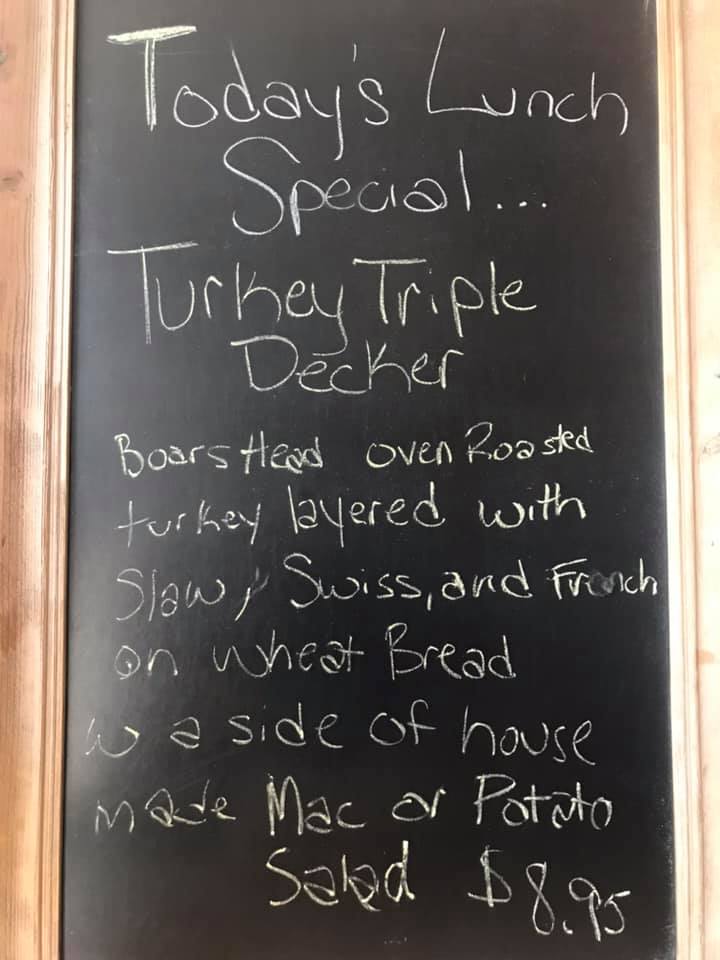 Today's Lunch
Special...
Turkey Triple
Decker
Boars Head oven Roasted
turkey layered with
Slaw, Swiss, and French
on wheat Bread
w a side of house
made Mac or Potato
Salad $8.95